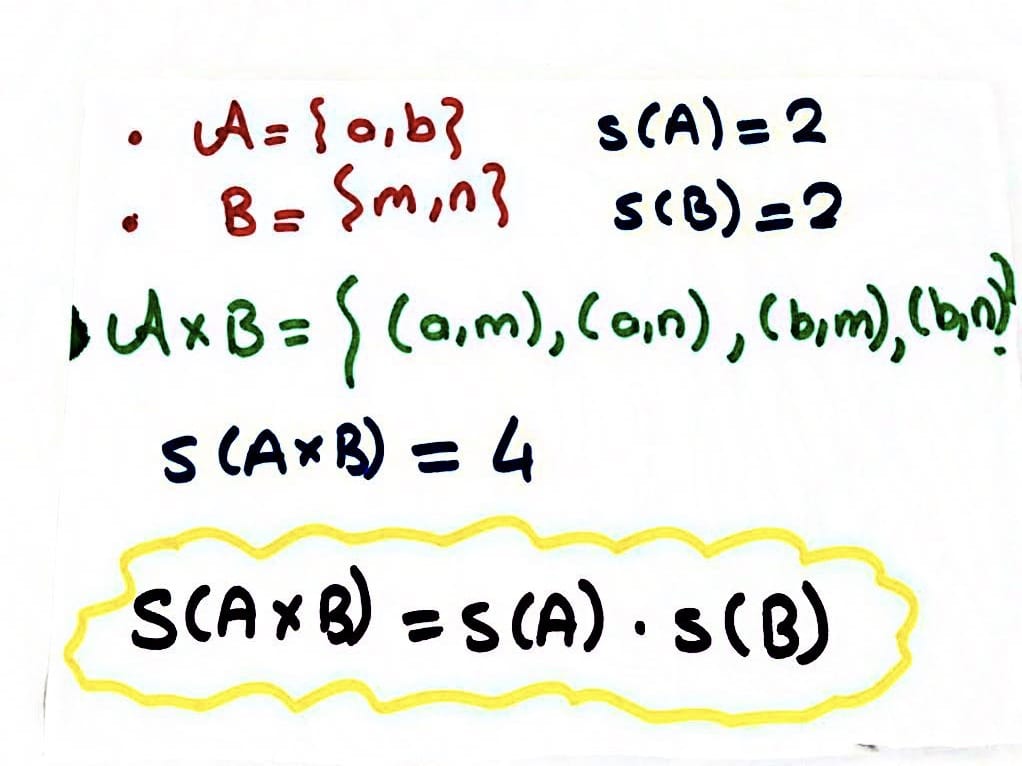 • A = {a,b} s(A) = 2
• B = {m,n} s(B) = 2
A x B = { (a,m), (a,n), (b,m), (b,n)}
s(A x B) = 4
s(A x B) = s(A) . s(B)